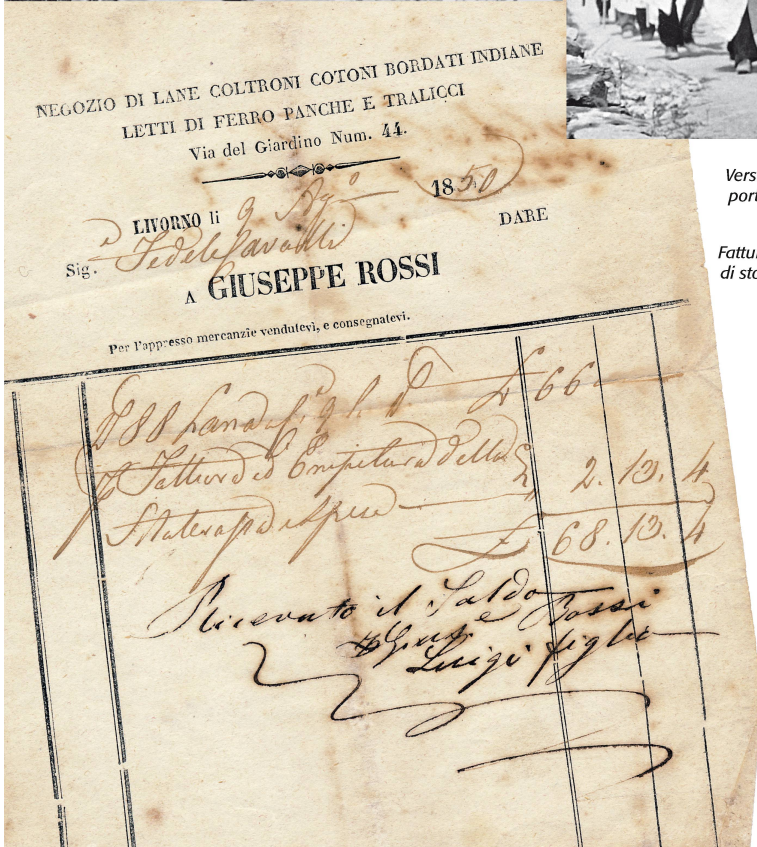 NEGOZIO DI LANE COLTRONI COTONI BORDATI INDIANE
LETTI DI FERRO PANCHE E TRALICCI
Via del Giardino Num. 44.
LIVORNO li 9 Agº 1850
DARE
Sig. Fedele Cavalli
A GIUSEPPE ROSSI
Per l'appresso mercanzie vendutevi, e consegnatevi.
88 Lana £ 66
Fattura ed Empitura della 2. 13. 4
Materassa e spese
£ 68. 13. 4
Ricevuto il Saldo
Giuse Rossi
Luigi figlio
Vers
port
Fattu
di sto